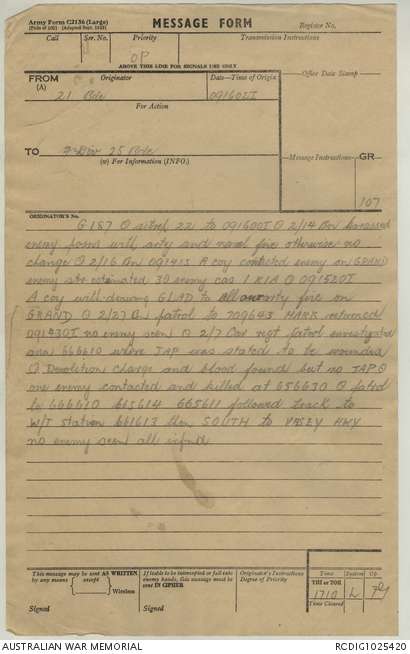 Army Form C2136 (Large)
MESSAGE FORM
Register No.
Call
Ser. No.
Priority
Transmission Instructions
OP
ABOVE THIS LINE FOR SIGNALS USE ONLY
FROM (A)
Originator
Date—Time of Origin
Office Date Stamp
21 Bde
091600I
For Action
TO
7 Div 25 Bde
(W) For Information (INFO.)
Message Instructions
GR
107
ORIGINATOR'S No.
G187 O sitrep 22 to 091600I O 2/14 Bn harassed
enemy posns with arty and naval fire otherwise no
change O 2/16 Bn 091415 A coy contacted enemy on GRAND
enemy str estimated 30 enemy cas 1 KIA O 091520I
A coy withdrawing GLAD to allow arty fire on
GRAND O 2/27 Bn patrol to 709643 HARK returned
091430I no enemy seen O 2/7 Cav regt patrol investigated
area 666610 where JAP was stated to be wounded
O Demolition charge and blood found but no JAP O
one enemy contacted and killed at 656630 O patrol
to 666610 665614 665611 followed track to
W/T station 661613 then SOUTH to VASEY HWY
no enemy seen all infmd
This message may be sent AS WRITTEN by any means except
Wireless
If liable to be intercepted or fall into enemy hands, this message must be sent IN CIPHER
Originator's Instructions
Degree of Priority
Time
System
Op.
THI or TOR
1710
L
Time Cleared
Signed
Signed
AUSTRALIAN WAR MEMORIAL
RCDIG1025420